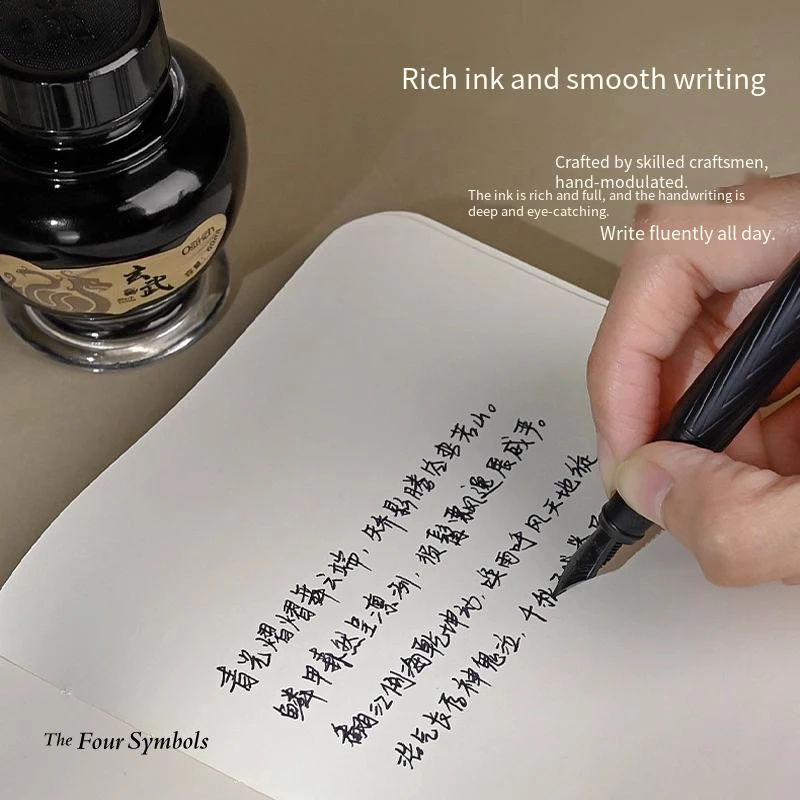 Rich ink and smooth writing
Crafted by skilled craftsmen,
hand-modulated.
The ink is rich and full, and the handwriting is
deep and eye-catching.
Write fluently all day.
玄武
青光熠熠舞云端,矫影腾
鳞甲森然呈凛冽,须髯飘逸展威严。
翻江倒海乾坤动,唤雨呼风天地旋
浩气长存神鬼泣,千秋
The Four Symbols